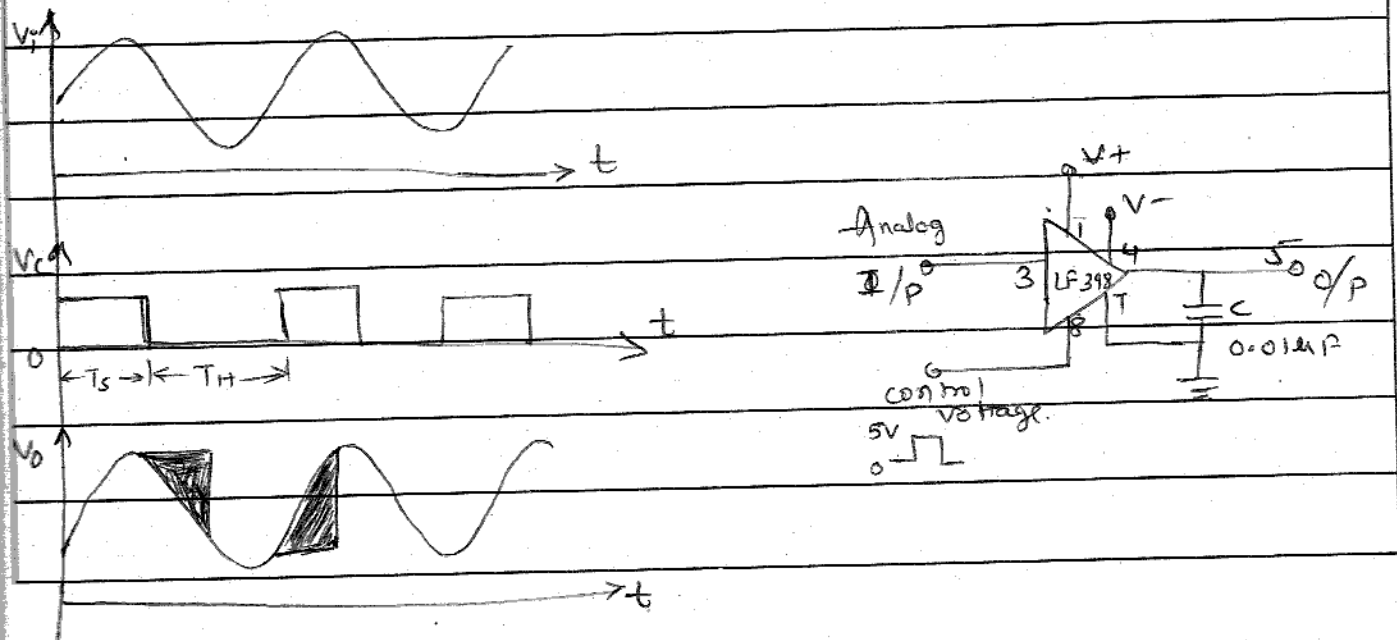 Vi
t
Vc
0
Ts
TH
t
Vo
t
V+
V-
Analog
I/P
3
1
4
LF 398
7
8
5
O/P
C
0.01μF
control
voltage.
5V
0